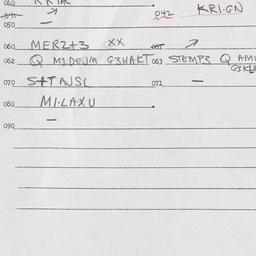 042 KRI-GN
050 —
060 MERZ+3 XX
062 Q M1DEJM G3HAKT 063 STEMP3 Q AMI
070 S+TAJSL 072 —
080 MI-LAXU
—
090